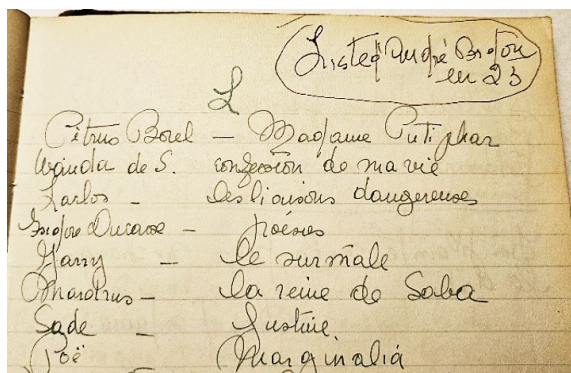 Liste d'André Breton
en 23
L
Pétrus Borel – Madame Putiphar
Wanda de S. confession de ma vie
Laclos – les liaisons dangereuses
Isidore Ducasse – poésies
Jarry – le surmâle
Mardrus – la reine de Saba
Sade – Justine
Poë Marginalia